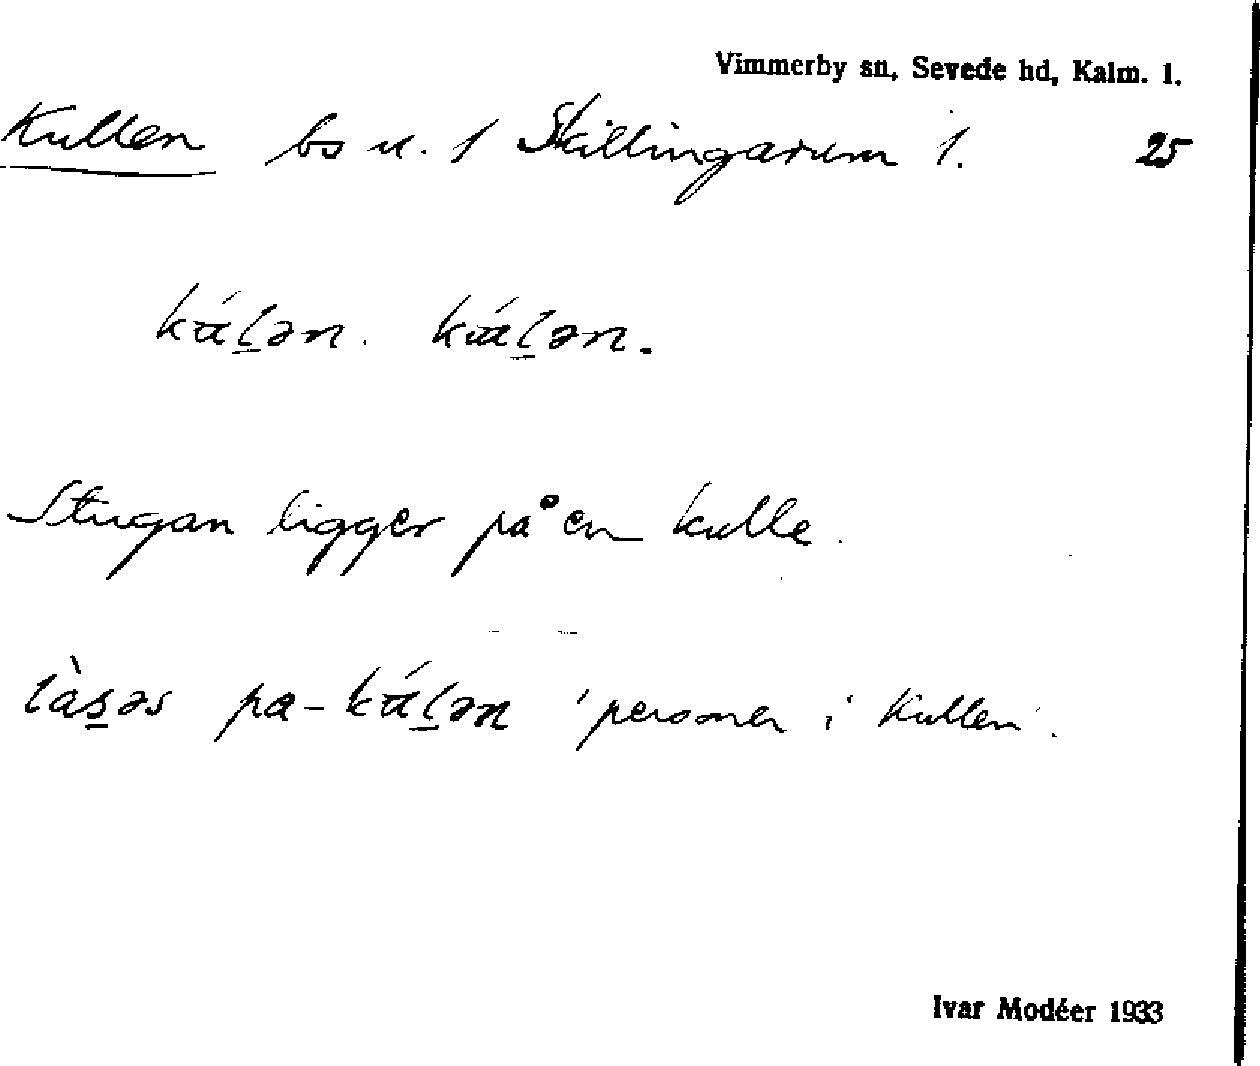 Vimmerby sn, Sevede hd, Kalm. l.
Kullen bs u. 1 Skillingarum 1. 25
kάl̲ən. kάl̲ən.
Stugan ligger på en kulle.
làs̲əs pa-kάl̲ən 'personer i Kullen'.
Ivar Modéer 1933